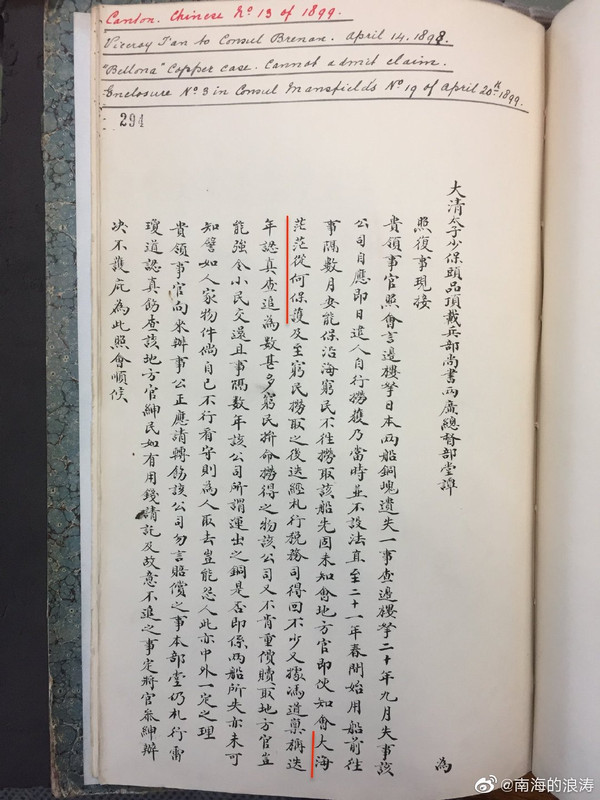 Canton. Chinese No 13 of 1899.
Viceroy Tan to Consul Brenan. April 14. 1898.
"Bellona" Copper case. Cannot admit claim.
Enclosure No 3 in Consul Mansfield's No 19 of April 20th 1899.
294
大清太子少保頭品頂戴兵部尚書兩廣總督部堂譚
為
照復事現接
貴領事官照會言邊樓拏日本兩船銅塊遺失一事查邊樓拏二十年九月失事該
公司自應即日遣人自行撈獲乃當時並不設法直至二十一年春間始用船前往
事隔數月安能保沿海窮民不往撈取該船先固未知會地方官即使知會大海
茫茫從何保護及至窮民撈取之後迭經札行稅務司得回不少又據馮道稟稱迭
年認真查追為數甚多窮民拚命撈得之物該公司又不肯重價贖取地方官豈
能強令小民交還且事隔數年該公司所謂運出之銅是否即係兩船所失亦未可
知譬如人家物件倘自己不行看守則為人取去豈能怨人此亦中外一定之理
貴領事官向來辦事公正應請轉飭該公司勿言賠償之事本部堂仍札行雷
瓊道認真飭查該地方官紳民如有用錢請託及故意不追之事定將官參紳辦
決不護庇為此照會順候
@南海的浪涛